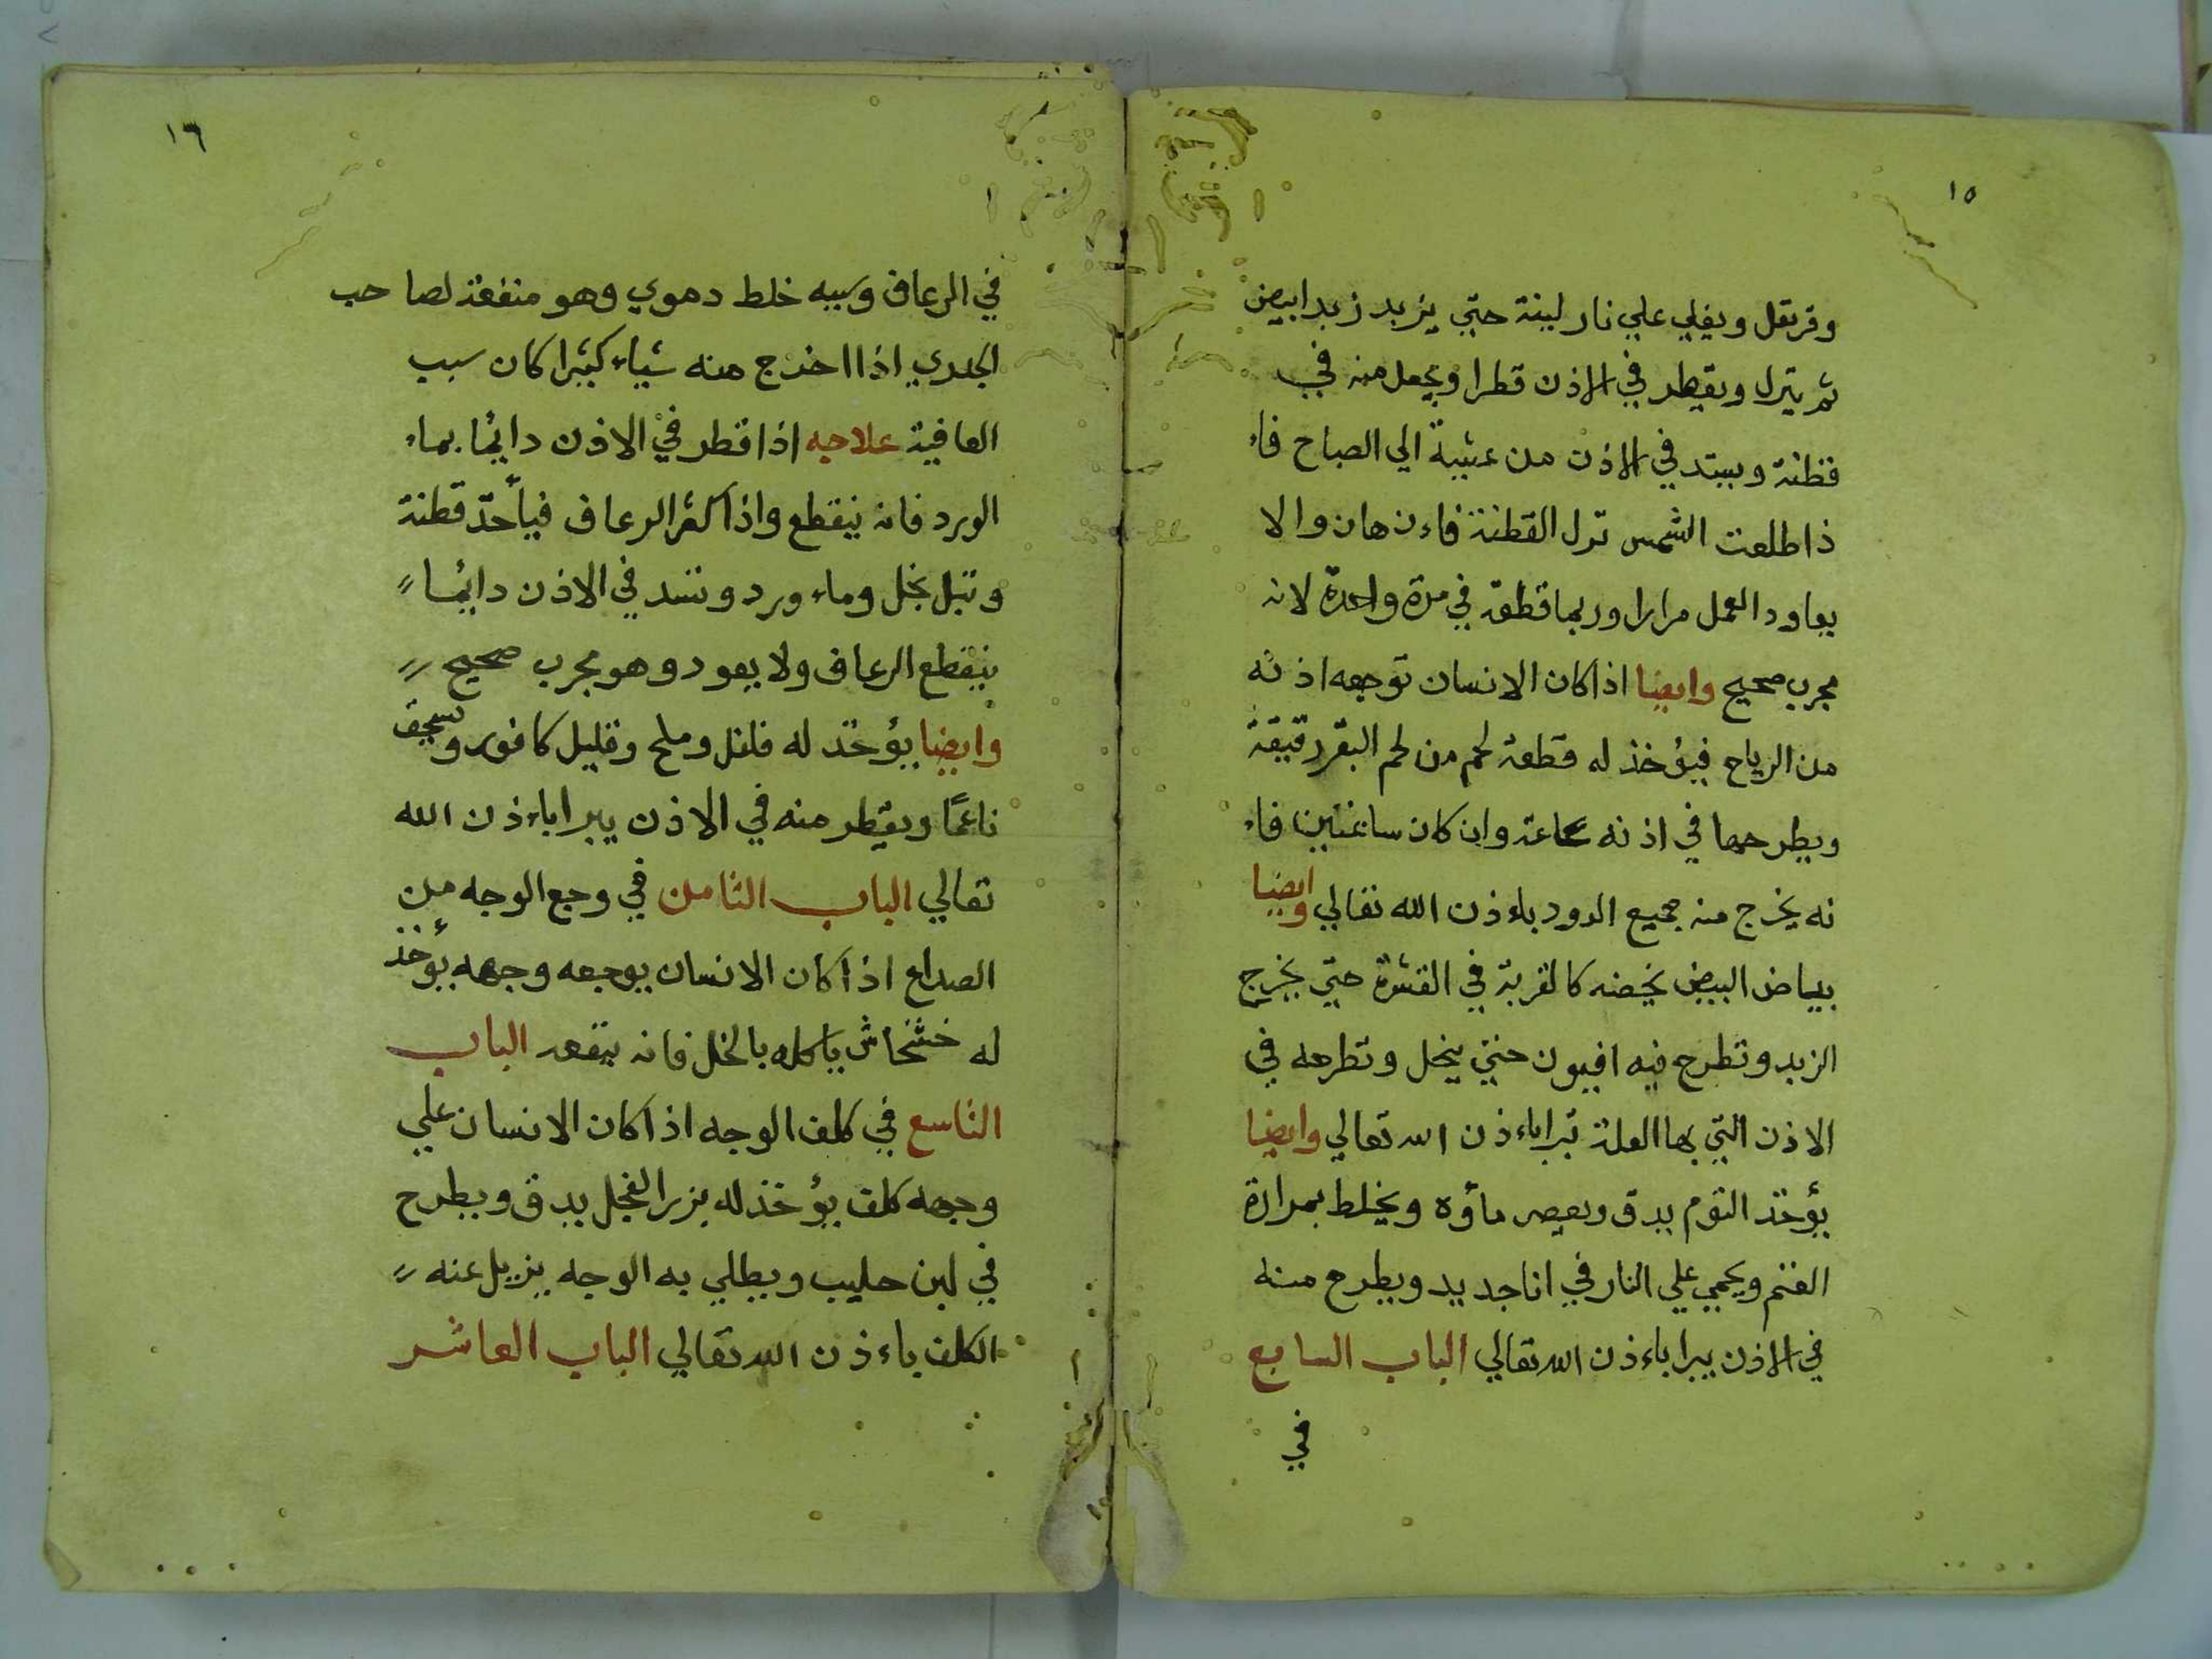 ١٥
وقرنفل ويغلي علي نار لينة حتي يزبد زبدا بيض
ثم ينزل ويقطر في الاذن قطرا ويجعل منه في
قطنة ويسد في الاذن من عشية الي الصباح فاء
ذا طلعت الشمس تزل القطنة فاءن هان والا
يعاود العمل مرارا وربما قطعه في مرة واحدة لانه
مجرب صحيح وايضا اذا كان الانسان توجعه اذنه
من الرياح فيؤخذ له قطعة لحم من لحم البقر رقيقة
ويطرحها في اذنه ساعة وان كان ساعتين فاء
نه يخرج منه جميع الدود باءذن الله تعالي وايضا
بياض البيض يخضه كالقربة في القشرة حتي يخرج
الزبد وتطرح فيه افيون حتي ينحل وتطرحه في
الاذن التي بها العلة تبرا باءذن الله تعالي وايضا
يؤخذ الثوم يدق ويعصر ماؤه ويخلط بمرارة
الغنم ويحمي علي النار في انا جديد ويطرح منه
في الاذن يبرا باءذن الله تعالي الباب السابع
في
١٦
في الرعاف وسببه خلط دموي وهو منفعة لصاحب
الجدري اذا اخرج منه شياء كثيرا كان سبب
العافية علاجه اذا قطر في الاذن دايما بماء
الورد فانه ينقطع واذا كثر الرعاف فيأخذ قطنة
وتبل بخل وماء ورد وتسد في الاذن دايما
ينقطع الرعاف ولا يعود وهو مجرب صحيح
وايضا يؤخذ له فلفل وملح وقليل كافور ويسحق
ناعما ويقطر منه في الاذن يبرا باءذن الله
تعالي الباب الثامن في وجع الوجه من
الصداع اذا كان الانسان يوجعه وجهه يؤخذ
له خشخاش ياكله بالخل فانه ينفعه الباب
التاسع في كلف الوجه اذا كان الانسان علي
وجهه كلف يؤخذ له بزر الفجل يدق ويطرح
في لبن حليب ويطلي به الوجه يزيل عنه
الكلف باءذن الله تعالي الباب العاشر